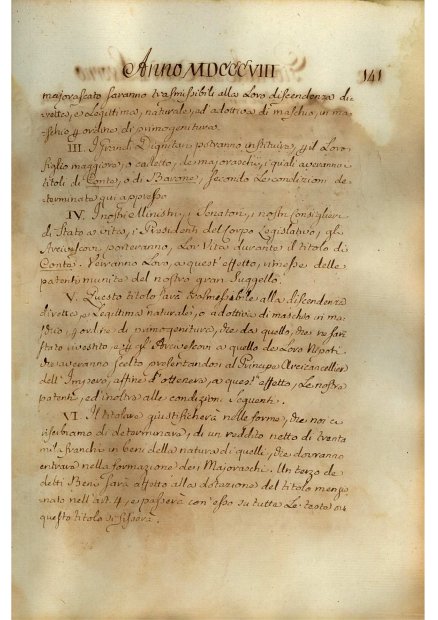 Anno MDCCCVIII
141
majorascato saranno trasmissibili alla Loro discendenza di-
retta, e Legittima, naturale, ed adottiva di maschio, in ma-
schio p ordine di primogenitura.
III. I Grandi Dignitarj potranno instituire p il Loro
figlio maggiore, o cadetto, de' majoraschi, i quali averanno
titoli di Conte, o di Barone, secondo Le condizioni de-
terminate qui appresso
IV. I nostri Ministri, i Senatori, i nostri Consiglieri
di Stato a vita, i Presidenti del Corpo Legislativo, gli
Arcivescovi porteranno, Lor Vita durante il titolo di
Conte. Verranno Loro, a quest' effetto, rimesse delle
patenti munite del nostro gran Suggello.
V. Questo titolo sarà trasmessibile alla discendenza
diretta, e Legittima naturale, o adottiva di maschio in ma-
schio, p ordine di primogenitura, che da quello, che ne sarà
stato rivestito, e p gl' Arcivescovi a quello de' Loro Nipoti
che averanno scelto presentandosi al Principe Arcicancellier
dell' Impero, affine d' ottenere, a quest' effetto, Le nostre
patenti, ed inoltre alle condizioni Seguenti.
VI. Il titolare giustificherà nelle forme, che noi ci
riserbiamo di determinare, di un reddito netto di trenta
mila franchi in beni della natura di quelli, che dovranno
entrare nella formazione dei Majoraschi. Un terzo de'
detti Beni sarà affetto alla dotazione del titolo menzio
nato nell' art. 4, e passerà con esso su tutte Le teste ove
questo titolo si fisserà.